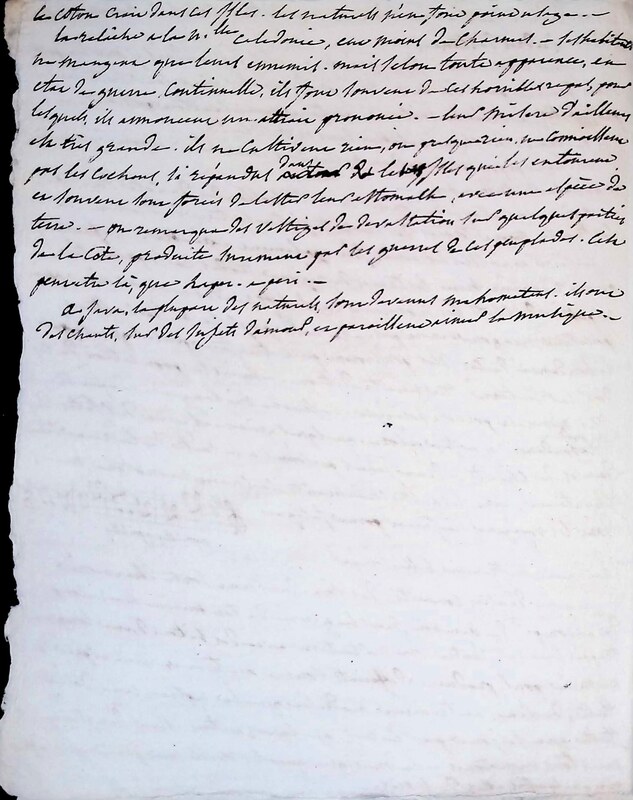 le coton croit dans ces isles. les naturels n'en font point usage. —
la relache a la n.lle Caledonie, eut moins de charmes. — les habitans
ne mangent que leurs ennemis. mais selon toute apparence, en
etat de guerre, continuelle, ils font souvent de ces horribles repas, pour
lesquels, ils annoncent un attrait prononcé. — leur misere d'ailleurs
est très grande. ils ne cultivent rien, ou presque rien, ne connoissent
pas les cochons, si répandus dans les isles qui les entourent
et souvent sont forcés de lester leur estomach, avec une espèce de
terre. — on remarque des vestiges de devastation sur quelques parties
de la Cote, produite surement par les guerres de ces peuplades. C'est
peut etre là, que Laper. a peri. —
a Java, la plupart des naturels, sont devenus mahometans. ils ont
des chants, sur des sujets d'amour, et paroissent aimer la musique. —